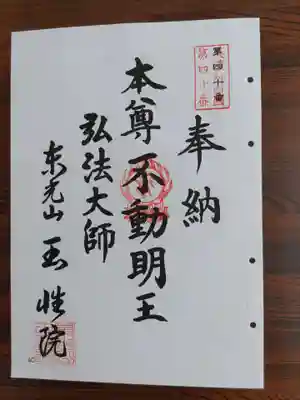 奉納
本尊不動明王
弘法大師
東光山玉性院